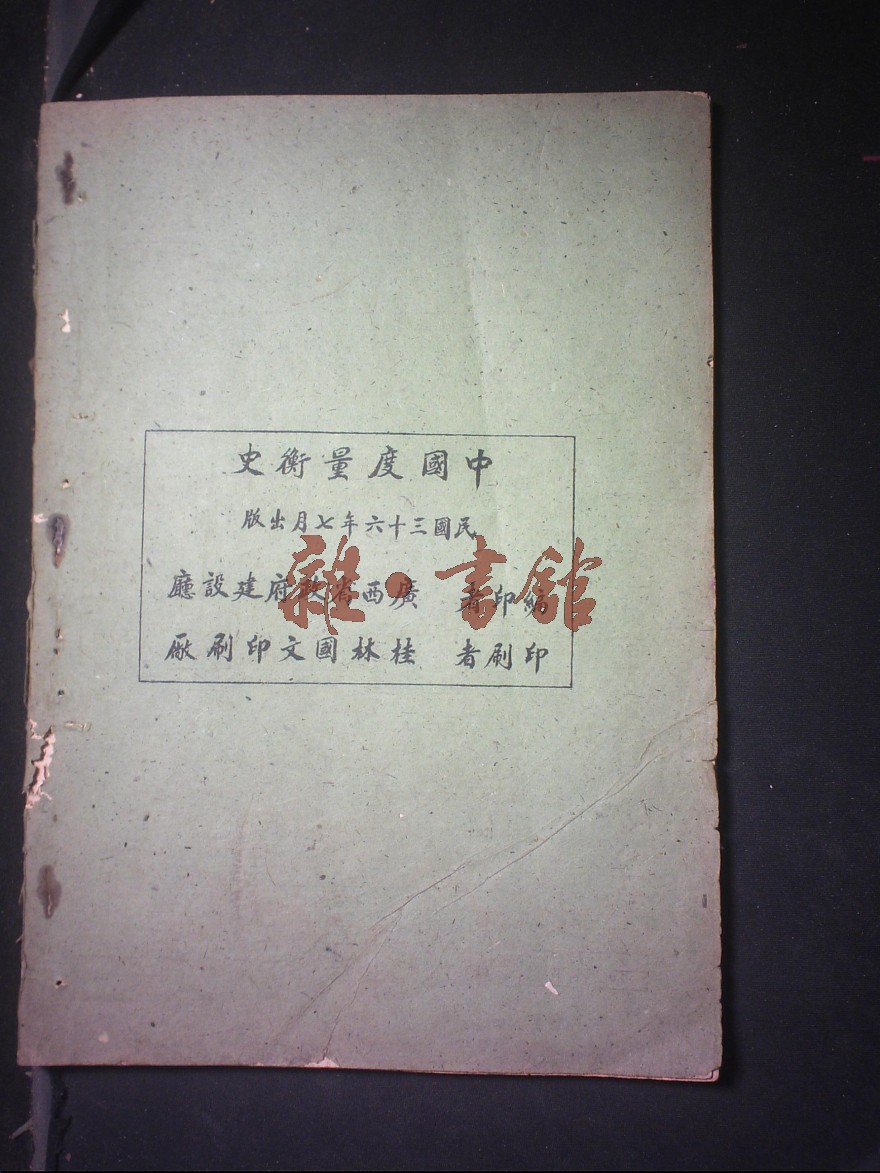 中國度量衡史
民國三十六年七月出版
編印者 廣西省政府建設廳
印刷者 桂林國文印刷厰
雜·書館